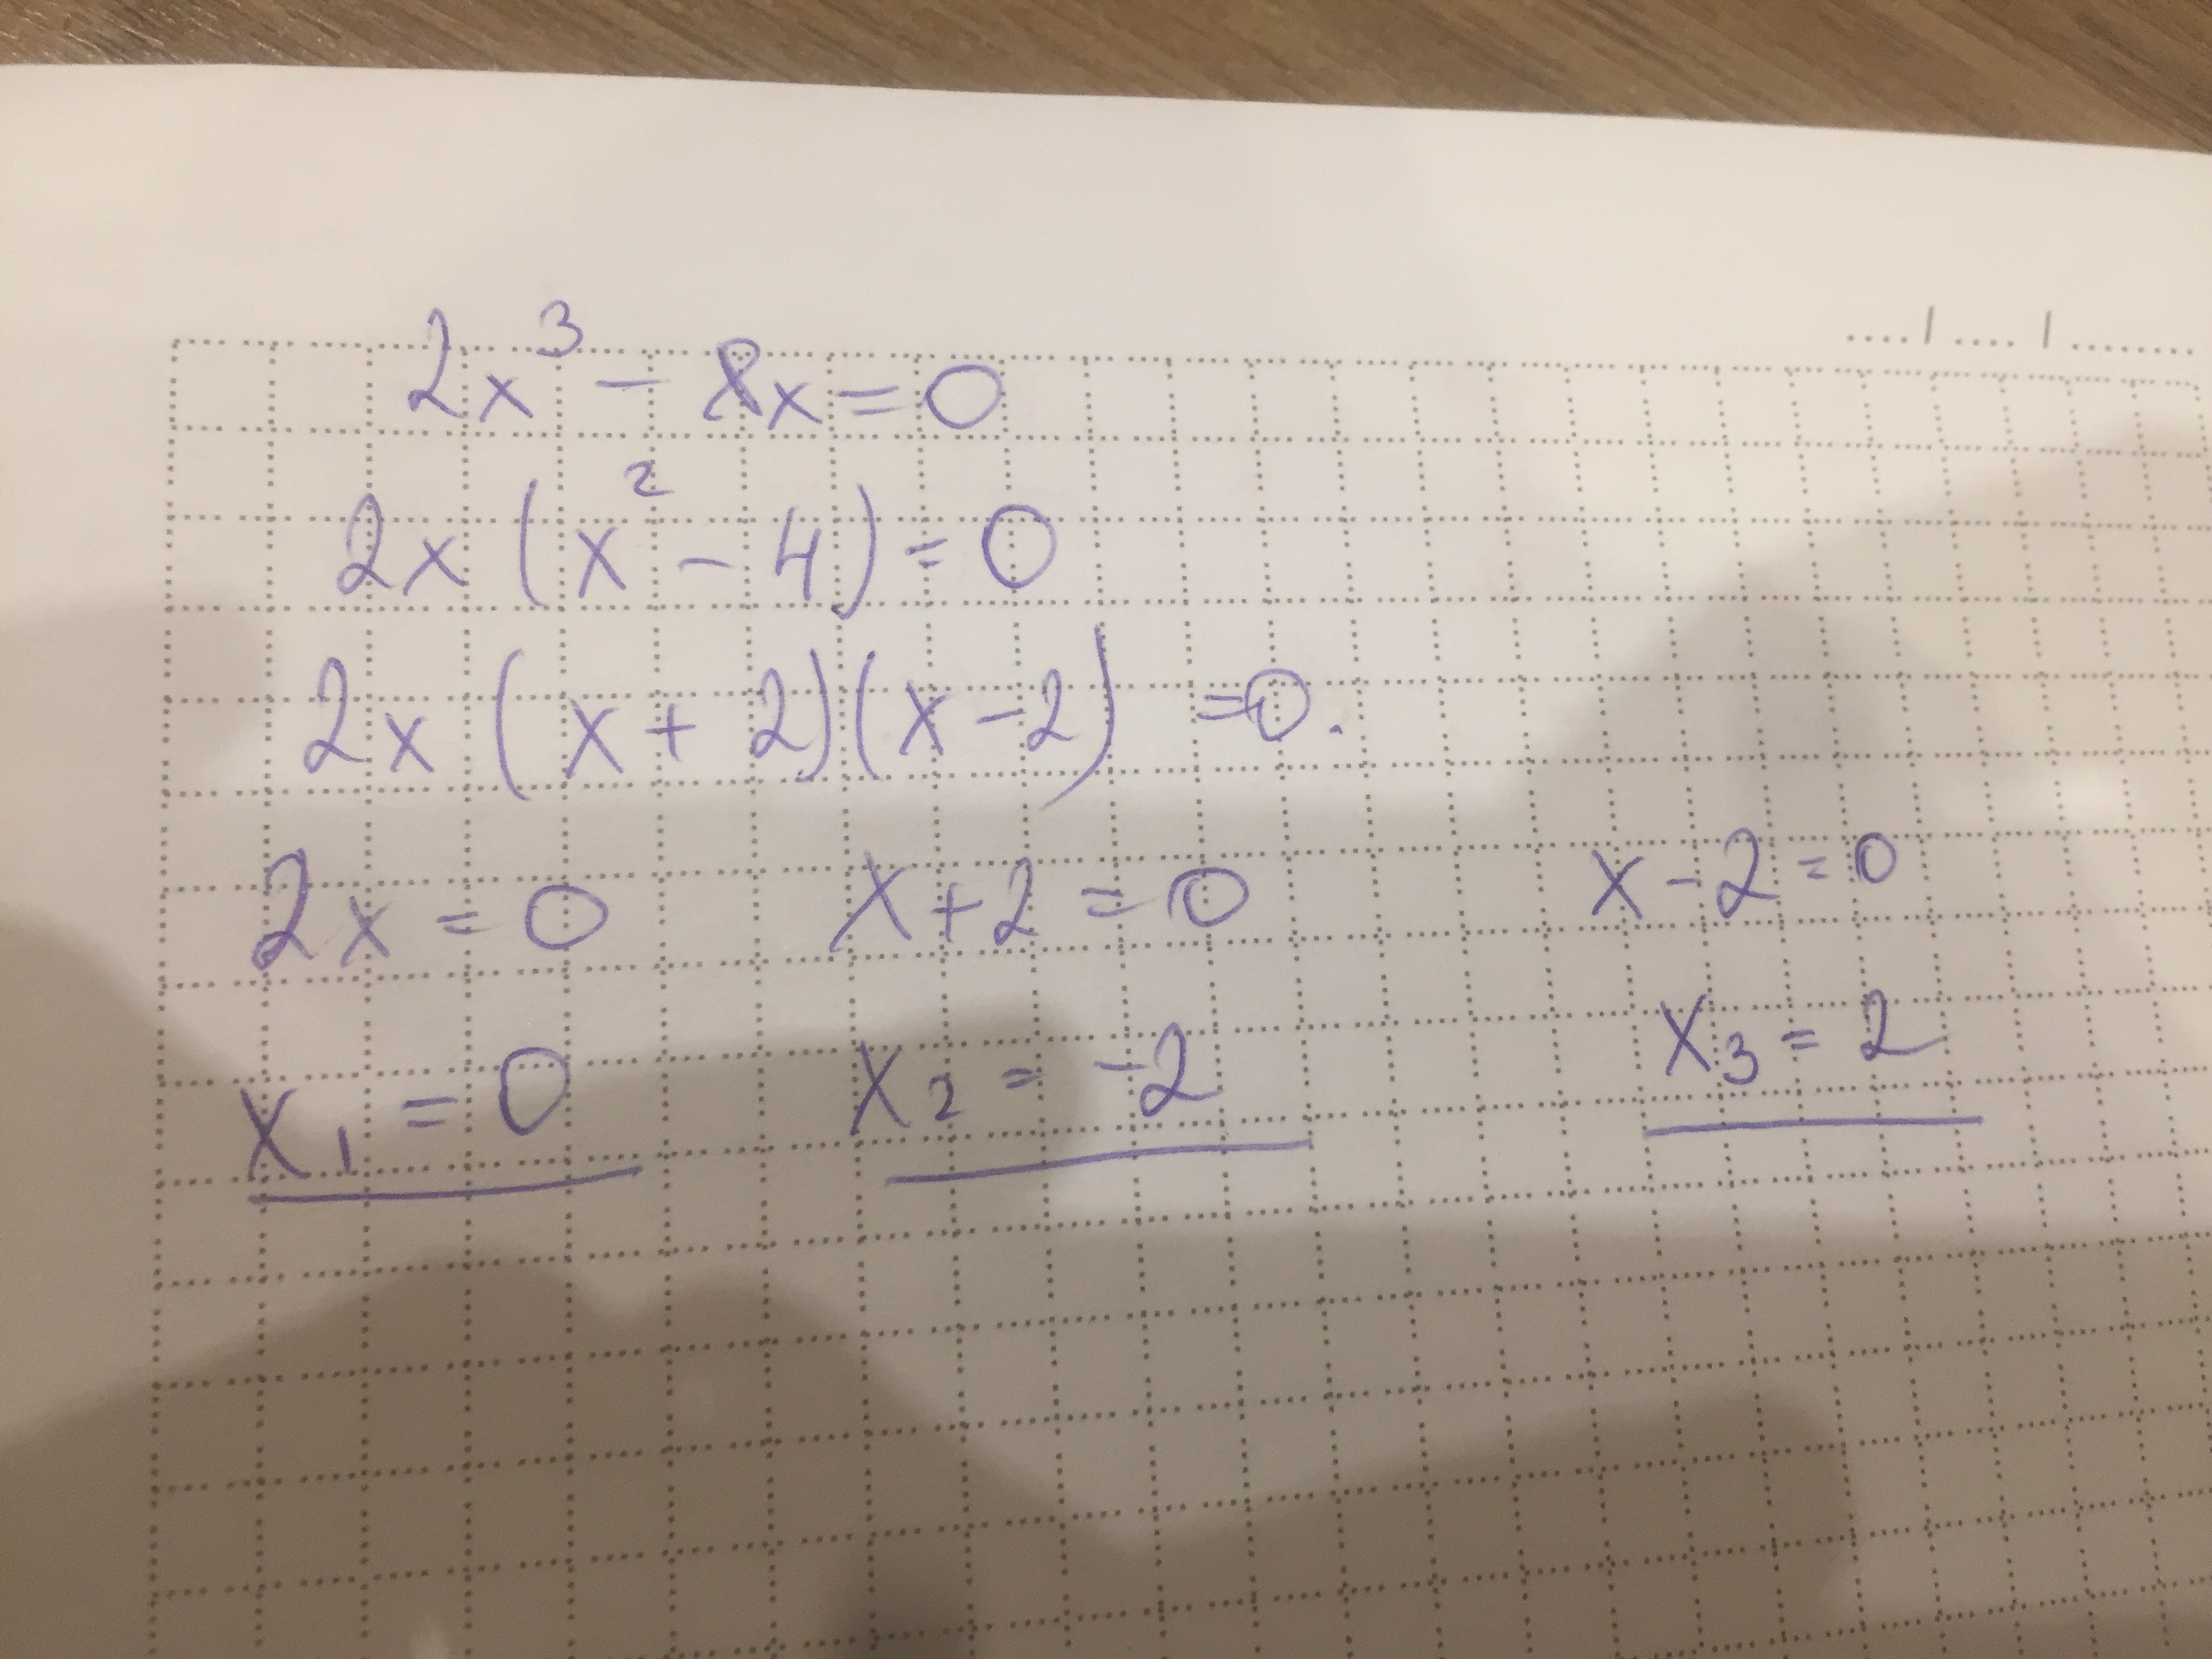 2x³ - 8x = 0
2x (x² - 4) = 0
2x (x + 2)(x - 2) = 0.
2x = 0 x + 2 = 0 x - 2 = 0
x₁ = 0 x₂ = -2 x₃ = 2